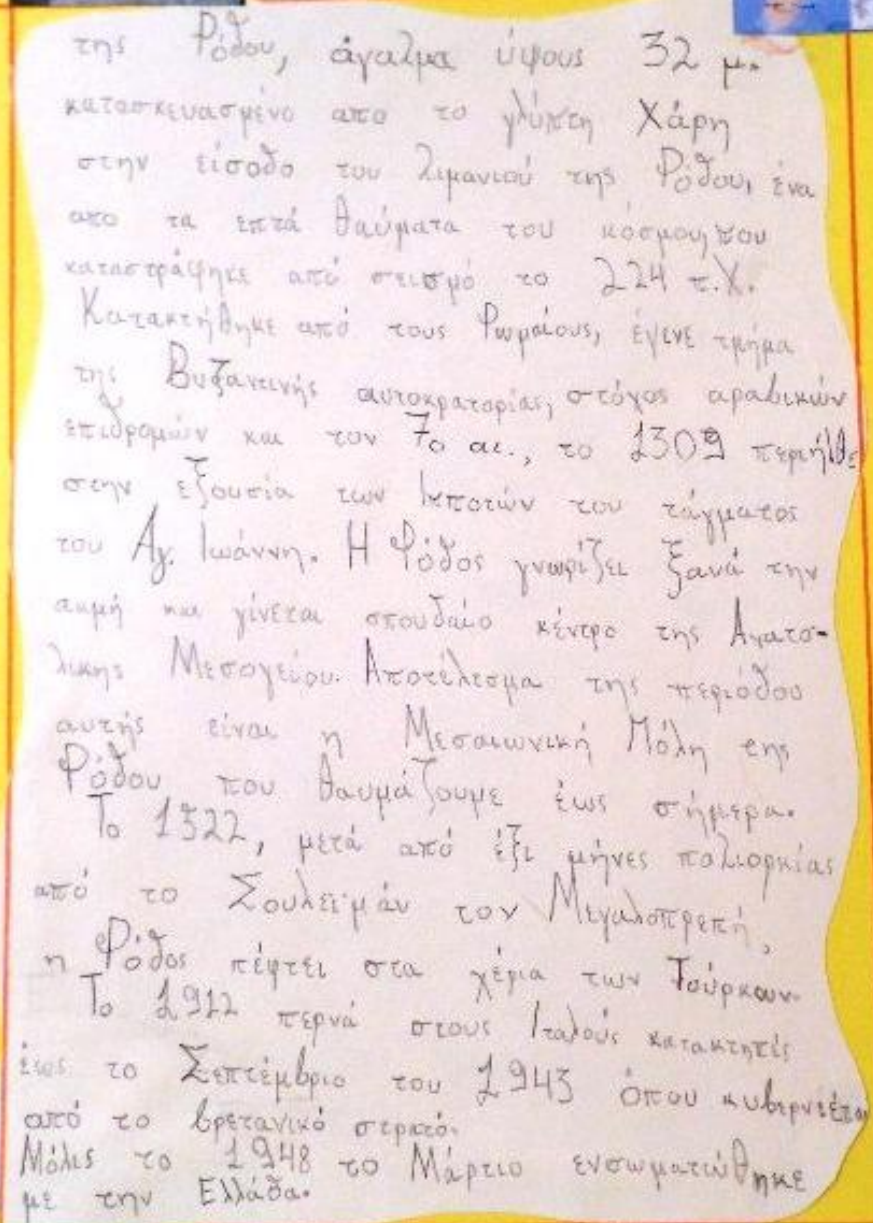 της Ρόδου, άγαλμα ύψους 32 μ.
κατασκευασμένο απο το γλύπτη Χάρη
στην είσοδο του λιμανιού της Ρόδου, ένα
απο τα επτά θαύματα του κόσμου, που
καταστράφηκε από σεισμό το 224 π.Χ.
Κατακτήθηκε από τους Ρωμαίους, έγινε τμήμα
της Βυζαντινής αυτοκρατορίας, στόχος αραβικών
επιδρομών και τον 7ο αι., το 1309 περιήλθε
στην εξουσία των Ιπποτών του τάγματος
του Αγ. Ιωάννη. Η Ρόδος γνωρίζει ξανά την
ακμή και γίνεται σπουδαίο κέντρο της Ανατο-
λικης Μεσογείου. Αποτέλεσμα της περιόδου
αυτής είναι η Μεσαιωνική Πόλη της
Ρόδου που θαυμάζουμε έως σήμερα.
Το 1522, μετά από έξι μήνες πολιορκίας
από το Σουλεϊμάν τον Μεγαλοπρεπή,
η Ρόδος πέφτει στα χέρια των Τούρκων.
Το 1912 περνά στους Ιταλούς κατακτητές
έως το Σεπτέμβριο του 1943 όπου κυβερνιέται
από το βρετανικό στρατό.
Μόλις το 1948 το Μάρτιο ενσωματώθηκε
με την Ελλάδα.